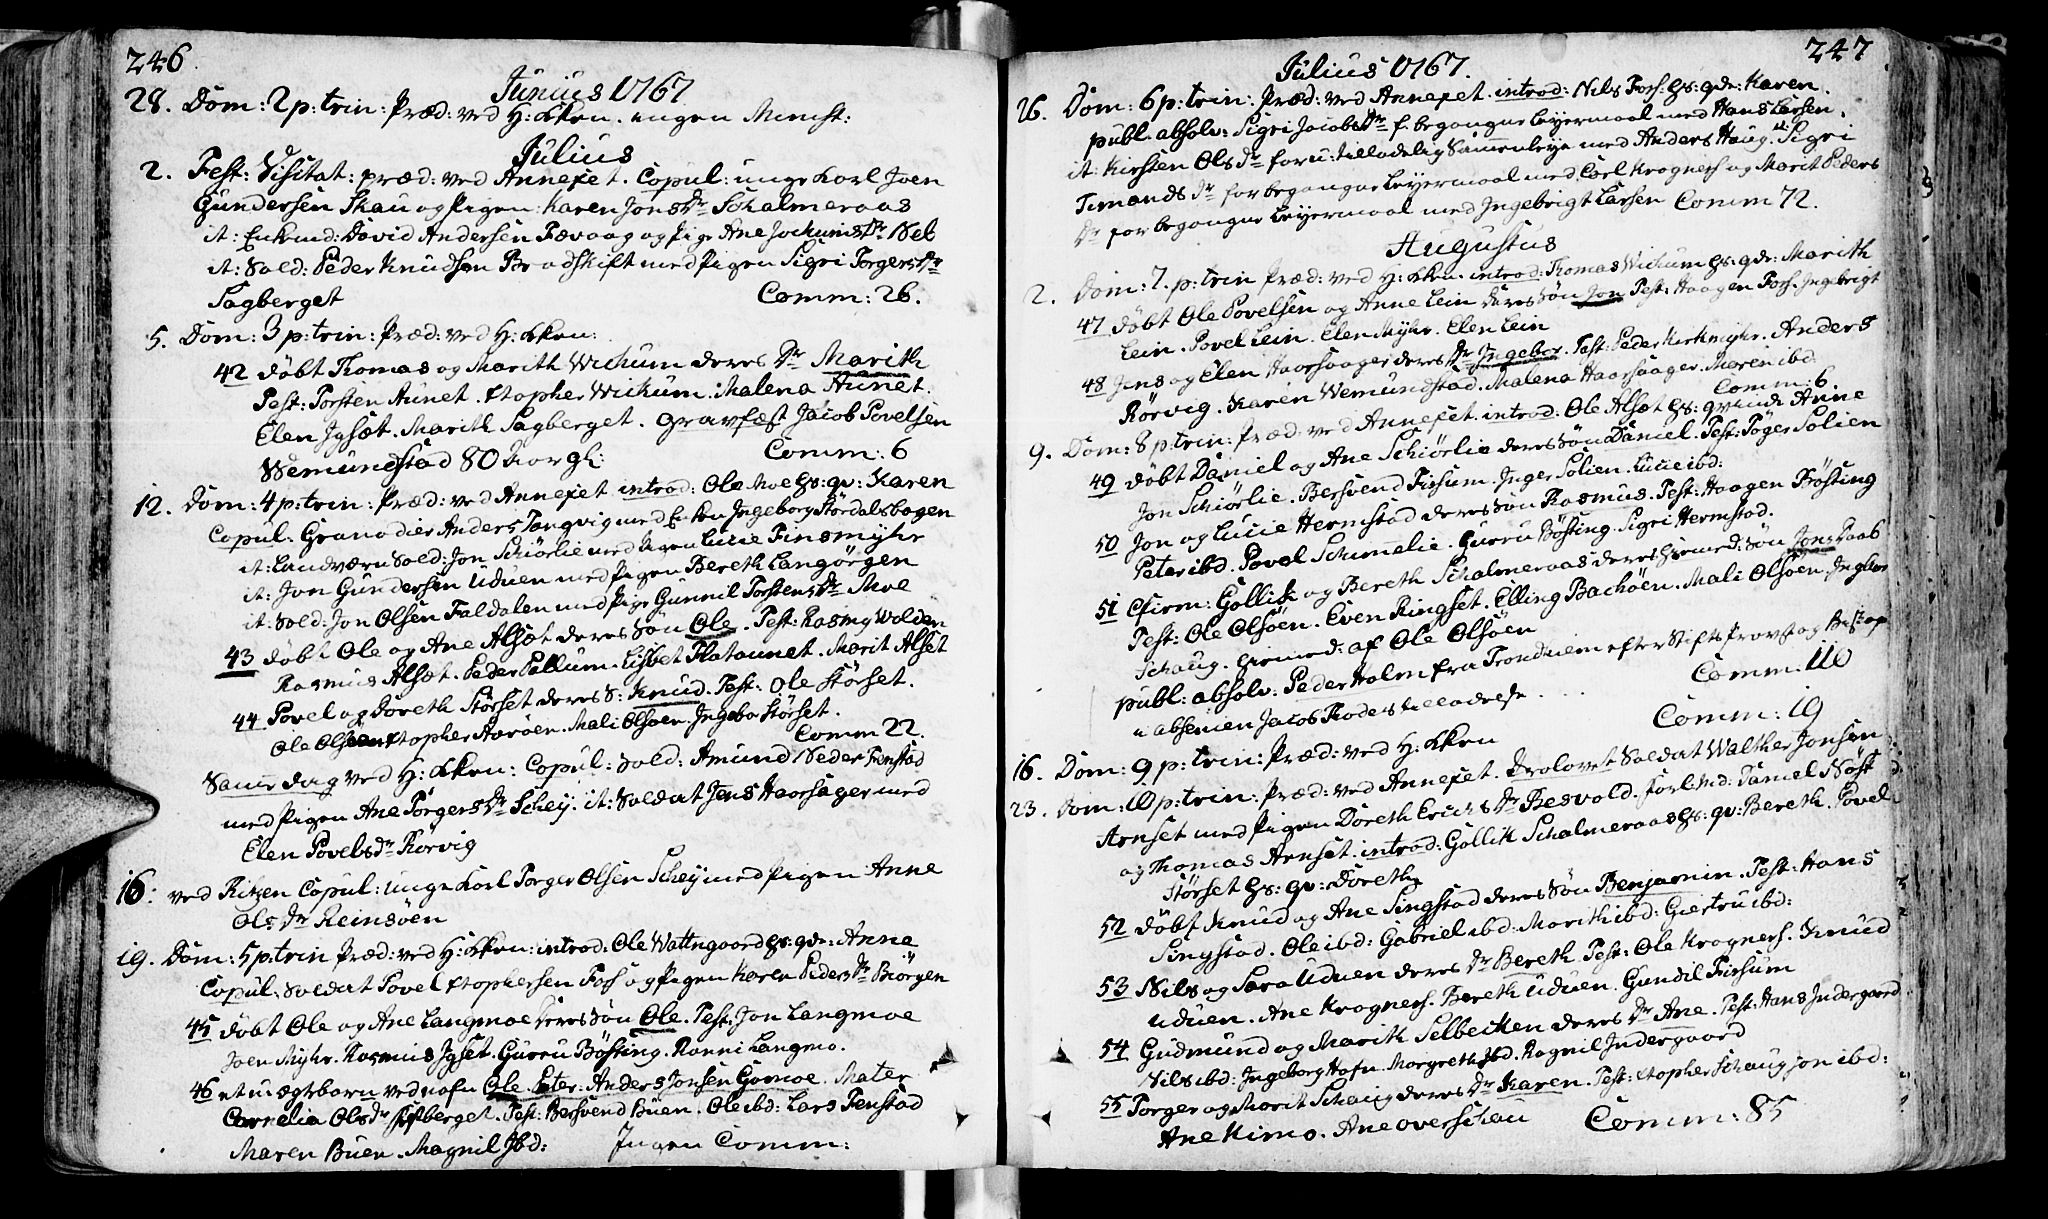 246
Junius 1767
28. Dom: 2 p: trin: Præd: ved H: Kken. ingen Minist:
Julius
2. Fest: Visitat: præd: ved Annexet. Copul: unge Karl Joen
Gundersen Skau og Pigen: Karen JonsDr Schalmeraas
it: Enkemd: David Andersen Fævaag og Pige Ane JochumsDr Neb
it: Sold: Peder Knudsen Brodskift med Pigen Sigri TorgersDr
Sagberget Comm: 26.
5. Dom: 3 p: trin: Præd: ved H: Kken:
42 döbt Thomas og Marith Wickum deres Dr Marith
Test: Torsten Aunet. Xtopher Wickum. Malena Aunet.
Elen Jgsæt. Marith Sagberget. Gravfæst Jacob Povelsen
Wemundstad 80 Aar gl: Comm: 6
12. Dom: 4 p: trin: Præd: ved Annexet introd: Ole Moe Hs: qv: Karen
Copul: Granadier Anders Tangvig med Enken Ingeborg Stördalsbogen
it: Landværn Sold: Jon Schiørlie med Pigen Lucie Finsmyhr
it: Jon Gundersen Uduen med Pigen Bereth Langörgen
it: Sold: Jon Olsen Faldalen med Pige Gunnil TorstensDr Moe
43 döbt Ole og Ane Alsæt deres Sön Ole. Test: Rasmy Wolden
Rasmus Alsæt. Peder Pallum. Lisbet Flataunet. Marit Alset
44 Povel og Doreth Störset deres S: Knud. Test: Ole Störset.
Ole Olsöen Xtopher Aaröen. Mali Olsöen. Ingebor Störset.
Comm 22.
Samme dag ved H: Kken: Copul: Sold: Amund Neder Fenstad
med Pigen Ane TorgersDr Schey. it: Soldat Jens Haarsager med
Elen PovelsDr Rörvig
16. ved Ritzen Copul: unge Karl Torger Olsen Schey med Pigen Anne
OlsDr Reinsöen
19. Dom: 5 p: trin Præd: ved H: Kken: introd: Ole Wattngaard Hs: qv: Anne
Copul: Soldat Povel Xtophersen Fos og Pigen Karen PedersDr Biörgen
45 döbt Ole og Ane Langmoe deres Sön Ole. Test: Jon Langmoe
Joen Myhr. Rasmus Jgset. Gurru Bösting. Ronni Langmo.
46 et uægte barn ved nafn Ole. Pater: Anders Jonsen Gomoe. Mater
Cornelia OlsDr Sagberget. Test: Bersvend Buen. Ole ibd: Lars Fenstad
Maren Buen. Magnil Jbd: Ingen Comm:
247
Julius 1767.
26. Dom: 6 p: trin: Præd: ved Annexet. introd: Nils Fos: Hs: qv: Karen.
publ. absolv: Sigri JacobsDr f. begangne Leyermaal med Hans Larsen.
it: Kirsten OlsDr for u: tilladelig Sammenleye med Anders Haug. it: Sigri
TimandsDr for begangne Leyermaal med Carl Krogness og Marit Peders
Dr for begangne Leyermaal med Ingebrigt Larsen Comm 72.
Augustus
2. Dom: 7. p: trin Præd: ved H: Kken. introd: Thomas Wickum Hs: qv: Marith
47 döbt Ole Povelsen og Anne Lein deres Sön Jon Test: Haagen Fos. Ingebrigt
Lein. Povel Lein. Elen Myhr. Elen Lein
48 Jens og Elen Haarsaager deres Dr Ingebor. Test: Peder Kirkmyhr. Anders
Rörvig. Karen Wemundstad. Malena Haarsaager. Maren ibd.
Comm: 6.
9. Dom: 8 p trin: Præd: ved Annexet introd: Ole Alsæt Hs: qvinde Anne
49 döbt Daniel og Ane Schiörlie deres Sön Daniel. Test: Töger Solien
Jon Schiörlie. Bersvend Fissum. Inger Solien. Lucie ibd:
50 Jon og Lucie Hermstad deres Sön Rasmus. Test: Haagen Frösting
Peter ibd. Povel Schimmelie. Gurru Bösting. Sigri Hermstad.
51 Cfirm: Gollik og Bereth Schalmeraas deres Hjemed: Sön Jon: Daab
Test: Ole Olsöen. Even Ringset. Elling Bachöen. Mali Olsöen. Ingebor
Schaug. Hjemed: af Ole Olsöen
publ: absolv: Peder Holm fra Trondhiem efter Stifts Provst og Bisk:
in absentien Jacob Rodes tilladelse Comm: 110
Comm: 19
16. Dom: 9 p: trin: Præd: ved H: Kken
23. Dom: 10 p: trin: Præd: ved Annexet. Trolovet Soldat Walther Jonsen
Arnset med Pigen Doreth ErichsDr Besvold. Forl: Md: Daniel Nöst
og Thomas Arnset. introd: Gollik Schalmeraas Hs: qv: Bereth. Povel
Störset Hs: qv: Doreth
52 döbt Knud og Ane Singstad deres Sön Benjamin. Test: Hans
Singstad. Ole ibd: Gabriel ibd: Marith ibd: Giertru ibd:
53 Nils og Sara Uduen deres Dr Bereth Test: Ole Krogness. Knud
Uduen. Ane Krogness. Bereth Uduen. Gundil Fissum
54 Gudmund og Marith Selbecken deres Dr Ane. Test: Hans Indergaard
Nils ibd: Ingeborg Hafn. Margreth Jbd. Ragnil Indergaard
55 Torger og Marit Schaug deres Dr Karen. Test: Xtopher Schaug Jon ibd:
Ane Kimo. Ane overschau Comm: 85